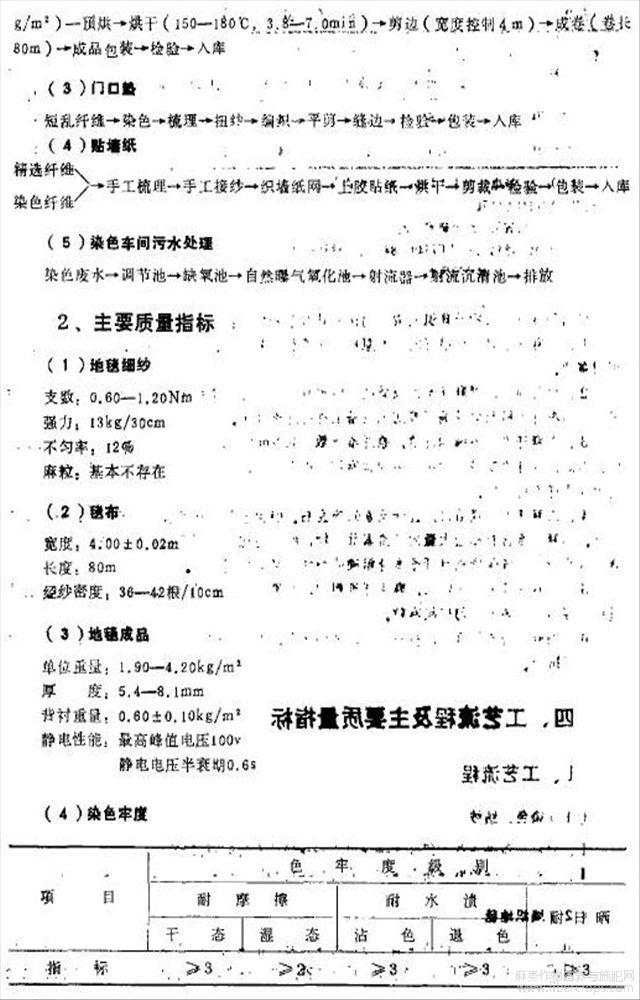 g/m²)—预烘→烘干(150—180℃，3.8—7.0min)→剪边(宽度控制4m)→成卷(卷长
80m)→成品包装→检验→入库
(3)门口垫
短乱纤维→染色→梳理→扭纱→编织→平剪→缝边→检验→包装→入库
(4)贴墙纸
精选纤维
染色纤维
→手工梳理→手工接纱→织墙纸网→上胶贴纸→烘干→剪裁→检验→包装→入库
(5)染色车间污水处理
染色废水→调节池→缺氧池→自然曝气氧化池→射流器→射流沉清池→排放
2、主要质量指标
(1)地毯细纱
支数：0.60—1.20Nm
强力：13kg/30cm
不匀率：12%
麻粒：基本不存在
(2)毯布
宽度：4.00±0.02m
长度：80m
经纱密度：36—42根/10cm
(3)地毯成品
单位重量：1.90—4.20kg/m²
厚 度：5.4—8.1mm
背衬重量：0.60±0.10kg/m²
四、工艺流程及主要质量指标
静电性能：最高峰值电压100v
静电电压半衰期0.6s
1、工艺流程
(4)染色牢度
色 牢 度 级 别
项 目
耐 摩 擦
耐 水 渍
晒
干 态
湿 态
沾 色
退 色
指 标
≥3
≥2
≥3
≥3
≥3
www.fibercrops.com